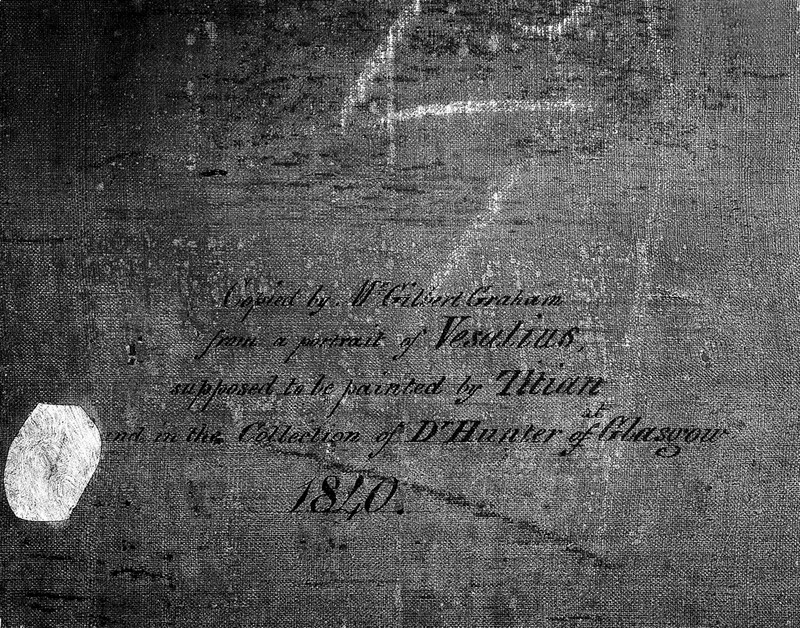 Copied by Mr Gilbert Graham
from a portrait of Vesalius,
supposed to be painted by Titian
and in the Collection of Dr Hunter of at Glasgow
1840.